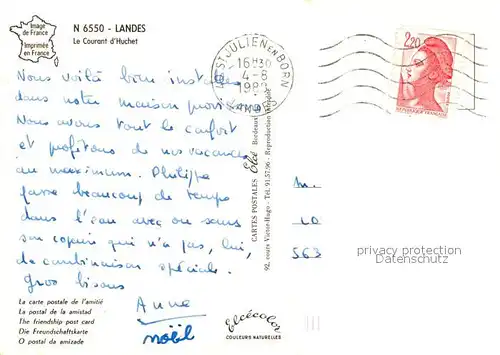 Image
de France
Imprimée
en France
N 6550 - LANDES
Le Courant d'Huchet
ST JULIEN EN BORN
16H30
4-8
LANDES
2,20
REPUBLIQUE FRANÇAISE
Nous voilà bien installés
dans notre maison provisoire
Nous avons tout le confort
et profitons de nos vacances
au maximum. Philippe
passe beaucoup de temps
dans l'eau avec ou sans
son copain qui n'a pas, lui,
de combinaison spéciale.
Gros bisous
Anne
noël
La carte postale de l'amitié
La postal de la amistad
The friendship post card
Die Freundschaftskarte
O postal da amizade
CARTES POSTALES Elcé Bordeaux
92, cours Victor-Hugo - Tél. 91.57.06 - Reproduction interdite
Elcécolor
COULEURS NATURELLES
M.
LO
563
privacy protection
Datenschutz